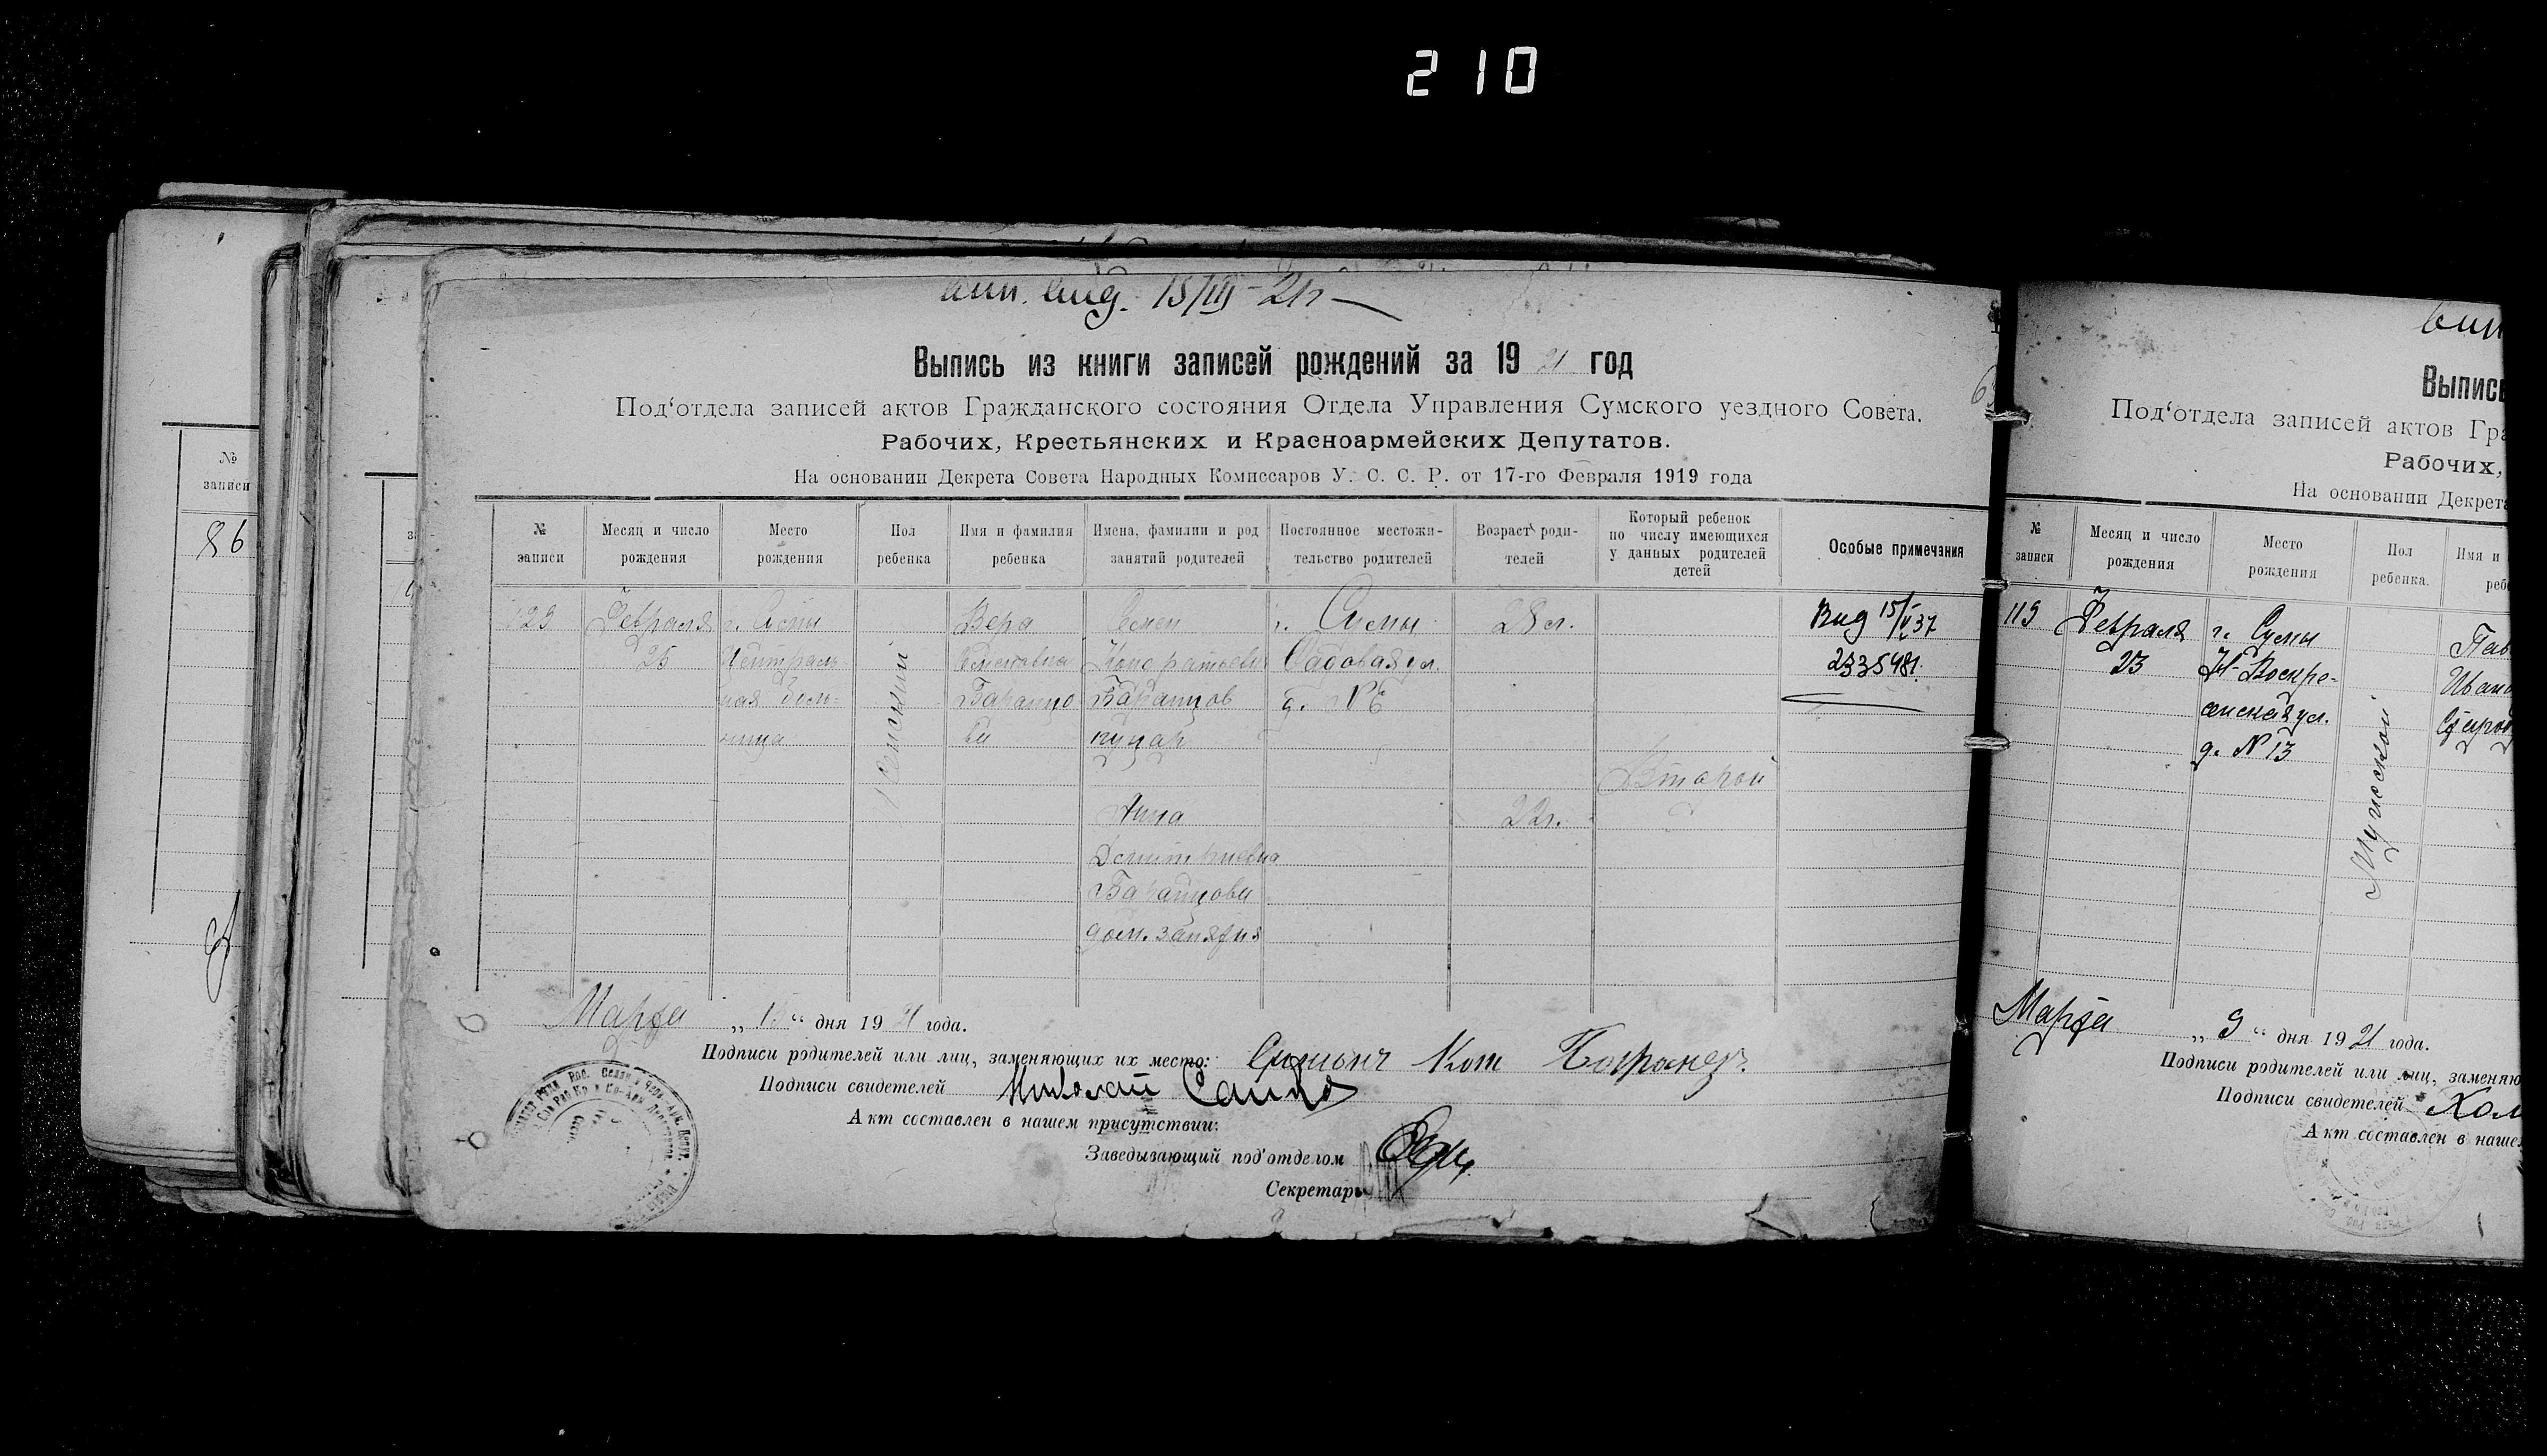 210
вып. выд. 15/III-21г
Выпись из книги записей рождений за 19 21 год
Под‘отдела записей актов Гражданского состояния Отдела Управления Сумского уездного Совета.
Рабочих, Крестьянских и Красноармейских Депутатов.
На основании Декрета Совета Народных Комиссаров У. С. С. Р. от 17-го Февраля 1919 года
№ записи
Месяц и число рождения
Место рождения
Пол ребенка
Имя и фамилия ребенка
Имена, фамилии и род занятий родителей
Постоянное местожи-
тельство родителей
Возраст роди-
телей
Который ребенок
по числу имеющихся
у данных родителей
детей
Особые примечания
123
Февраля
25
г. Сумы
Централь-
ная боль-
ница
Женский
Вера
Семеновна
Баранцо
ва
Семен
Кондратьевич
Баранцов
кучар
Анна
Дмитриевна
Баранцова
дом. занятия
г. Сумы
Садовая ул.
д. №
28 л.
22 г.
Второй
Вид 15/V 37
2335481.
Марта „ 15 “ дня 19 21 года.
Подписи родителей или лиц, заменяющих их место:
Подписи свидетелей Николай
Акт составлен в нашем присутствии:
Заведывающий под‘отделом
Секретарь
№
записи
86
Выпись
Под‘отдела записей актов Гра
Рабочих,
На основании Декрета
№
записи
Месяц и число
рождения
Место
рождения
Пол
ребенка.
Имя и
реб
115
Февраля
23
г. Сумы
Н-Воскре-
сенская ул.
д. № 13
Мужской
Пав
Иван
Марта „ 9 “ дня 19 21 года.
Подписи родителей или лиц, заменяю
Подписи свидетелей
Акт составлен в наше